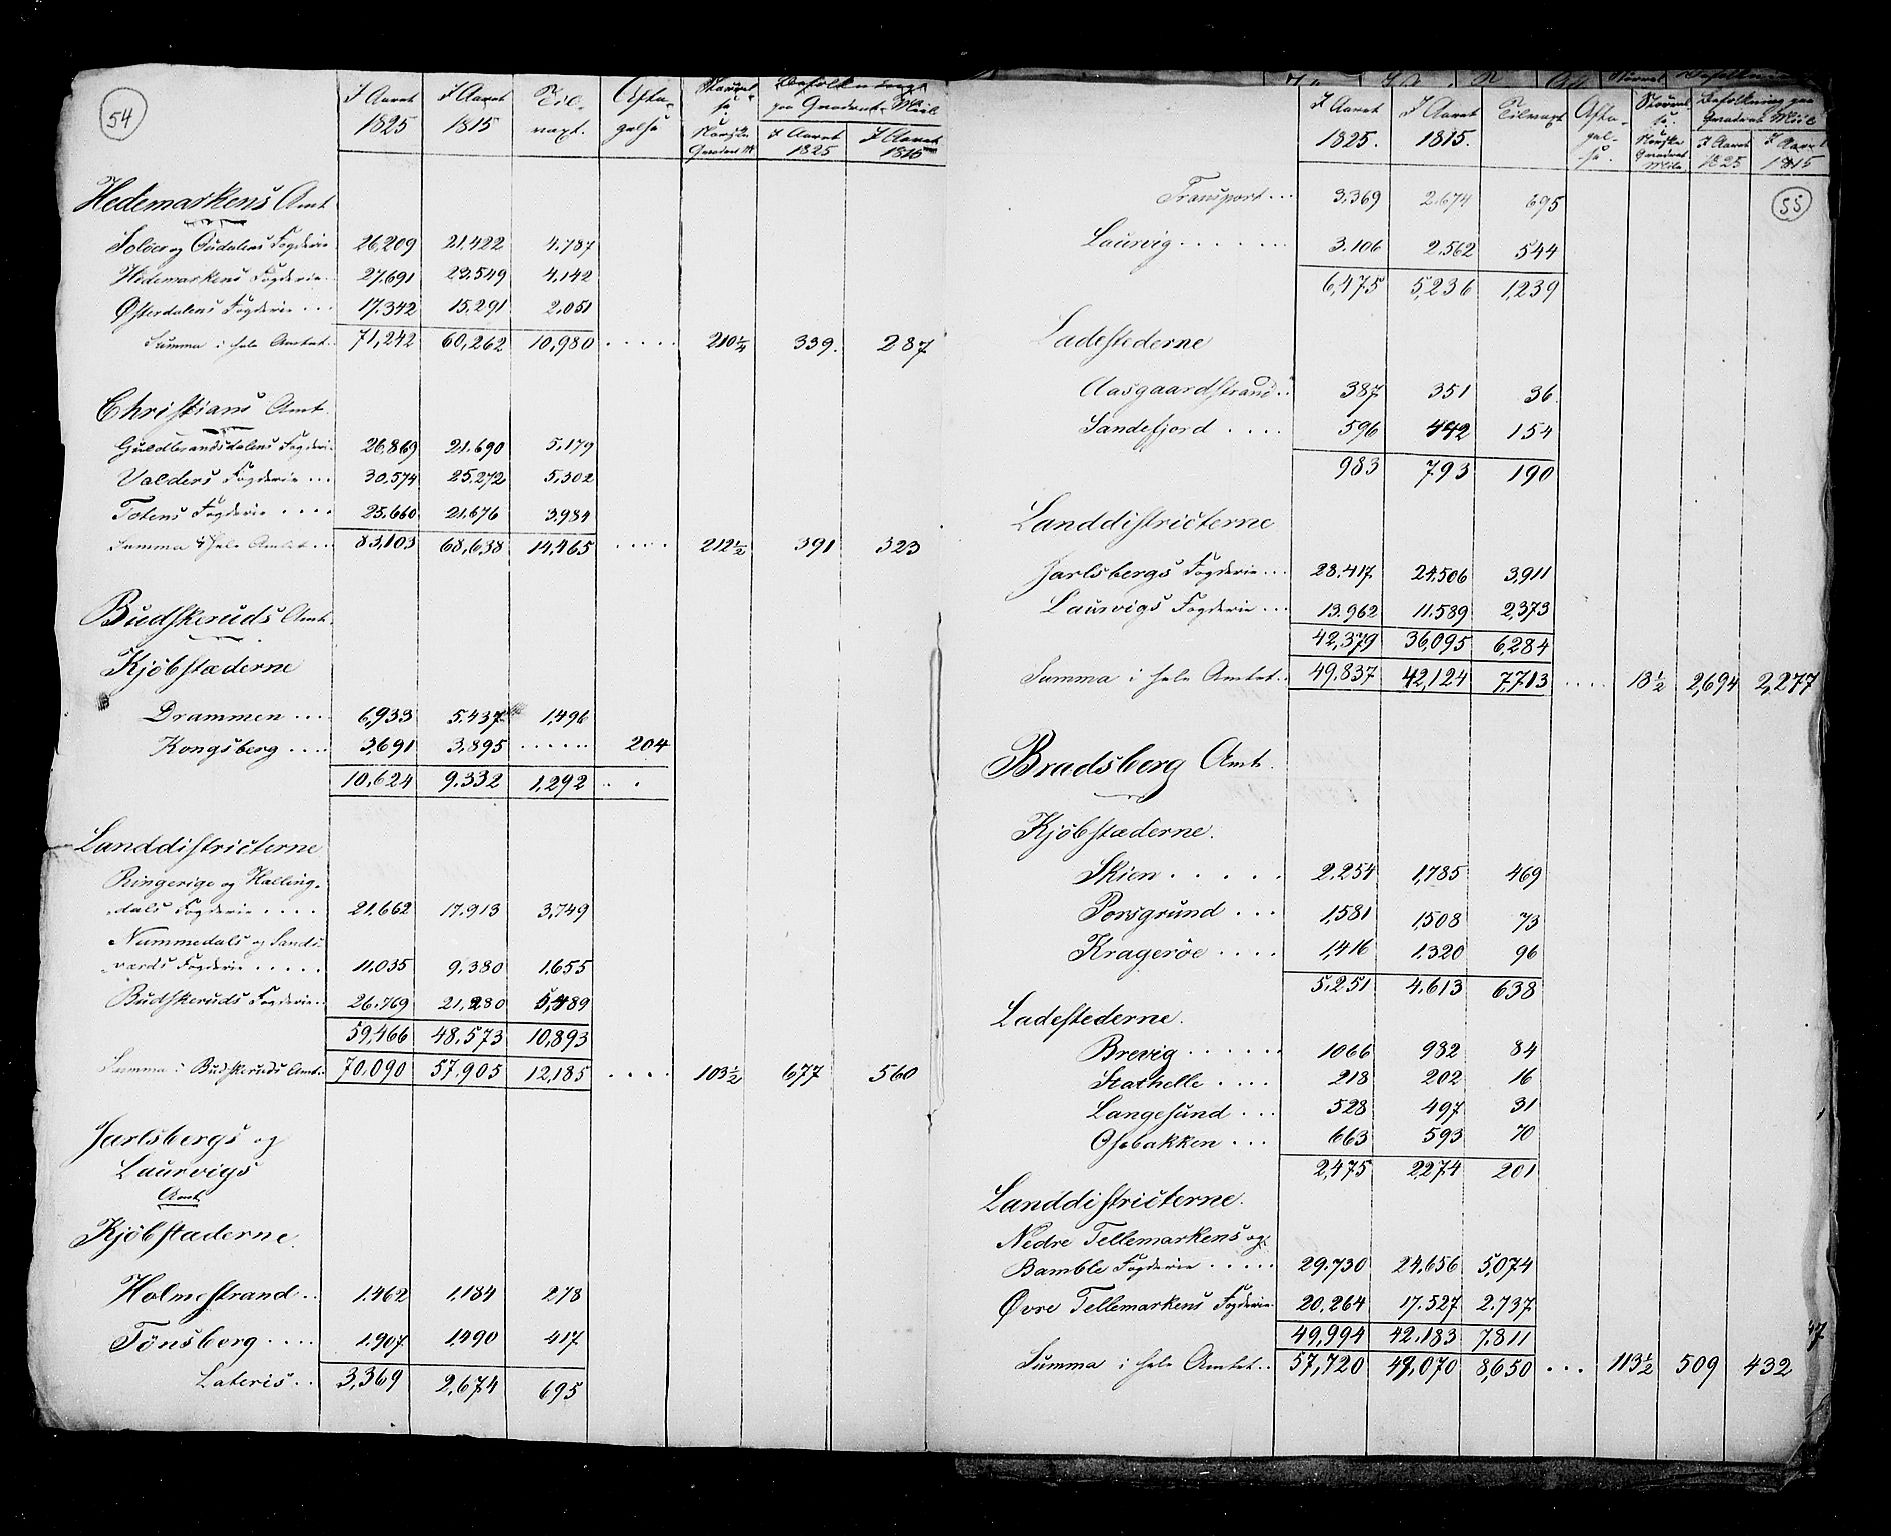 54
I Aaret 1825 | I Aaret 1815 | Til- vaxt. | Afta- gelse | Størrel- se. Norske Quadrat M. | Befolkningen paa Quadrat Miil
I Aaret 1825 | I Aaret 1815
Hedemarkens Amt
Soloer og Oudalens Fogderie 26,209 21,422 4,787
Hedemarkens Fogderie 27,691 23,549 4,142
Østerdalens Fogderie ... 17,342 15,291 2,051
Summa i hele Amtet 71,242 60,262 10,980 ..... 210¼ 339. 287
Christians Amt.
Guldbrandsdalens Fogderie 26,869 21,690 5,179
Valders Fogderie ... 30,574 25,272 5,302
Totens Fogderie .... 25,660 21,676 3,984
Summa i hele Amtet .. 83,103 68,638 14,465 .... 212½ 391 323
Budskeruds Amt.
Kjöbstæderne
Drammen .... 6,933 5,437 1,496
Kongsberg .... 3,691 3,895 ...... 204
10,624 9,332 1,292 . .
Landdistricterne
Ringerige og Halling-
dals Fogderie .... 21,662 17,913 3,749
Nummedals og Sands-
værds Fogderie ..... 11,035 9,380 1,655
Budskeruds Fogderie .. 26,769 21,280 5,489
59,466 48,573 10,893
Summa i Budskeruds Amt. 70,090 57,905 12,185 .... 103½ 677 560
Jarlsbergs og
Laurvigs
Amt
Kjöbstæderne.
Holmestrand .. 1,462 1,184 278
Tönsberg .... 1,907 1,490 417
Lateris .. 3,369 2,674 695
I Aaret 1825. | I Aaret 1815. | Tilvaxt | Afta- gel- se. | Størrel- se. Norske Quadrat Mile | Befolkning paa Quadrat Miil
I Aaret 1825 | I Aaret 1815
55
Transport ... 3,369 2,674 695
Laurvig ....... 3,106 2,562 544
6,475 5,236 1,239
Ladestederne
Aasgaardstrand .. 387 351 36.
Sandefjord .... 596 442 154
983 793 190
Landdistricterne
Jarlsbergs Fogderie ... 28,417 24,506 3,911
Laurvigs Fogderie ... 13,962 11,589 2,373
42,379 36,095 6,284
Summa i hele Amtet .. 49,837 42,124 7,713 .... 18½ 2,694 2,277
Bradsberg Amt.
Kjöbstæderne.
Skien ..... 2,254 1,785 469
Porsgrund ... 1,581 1,508 73
Kragerøe .... 1,416 1,320 96
5,251 4,613 638
Ladestederne.
Brevig ...... 1066 982 84
Stathelle .... 218 202 16
Langesund ... 528 497 31
Osebakken ... 663 593 70
2,475 2,274 201
Landdistricterne.
Nedre Tellemarkens og
Bamble Fogderie ..... 29,730 24,656 5,074
Øvre Tellemarkens Fogderie. 20,264 17,527 2,737
49,994 42,183 7,811
Summa i hele Amtet .. 57,720 49,070 8,650 ... 113½ 509 432